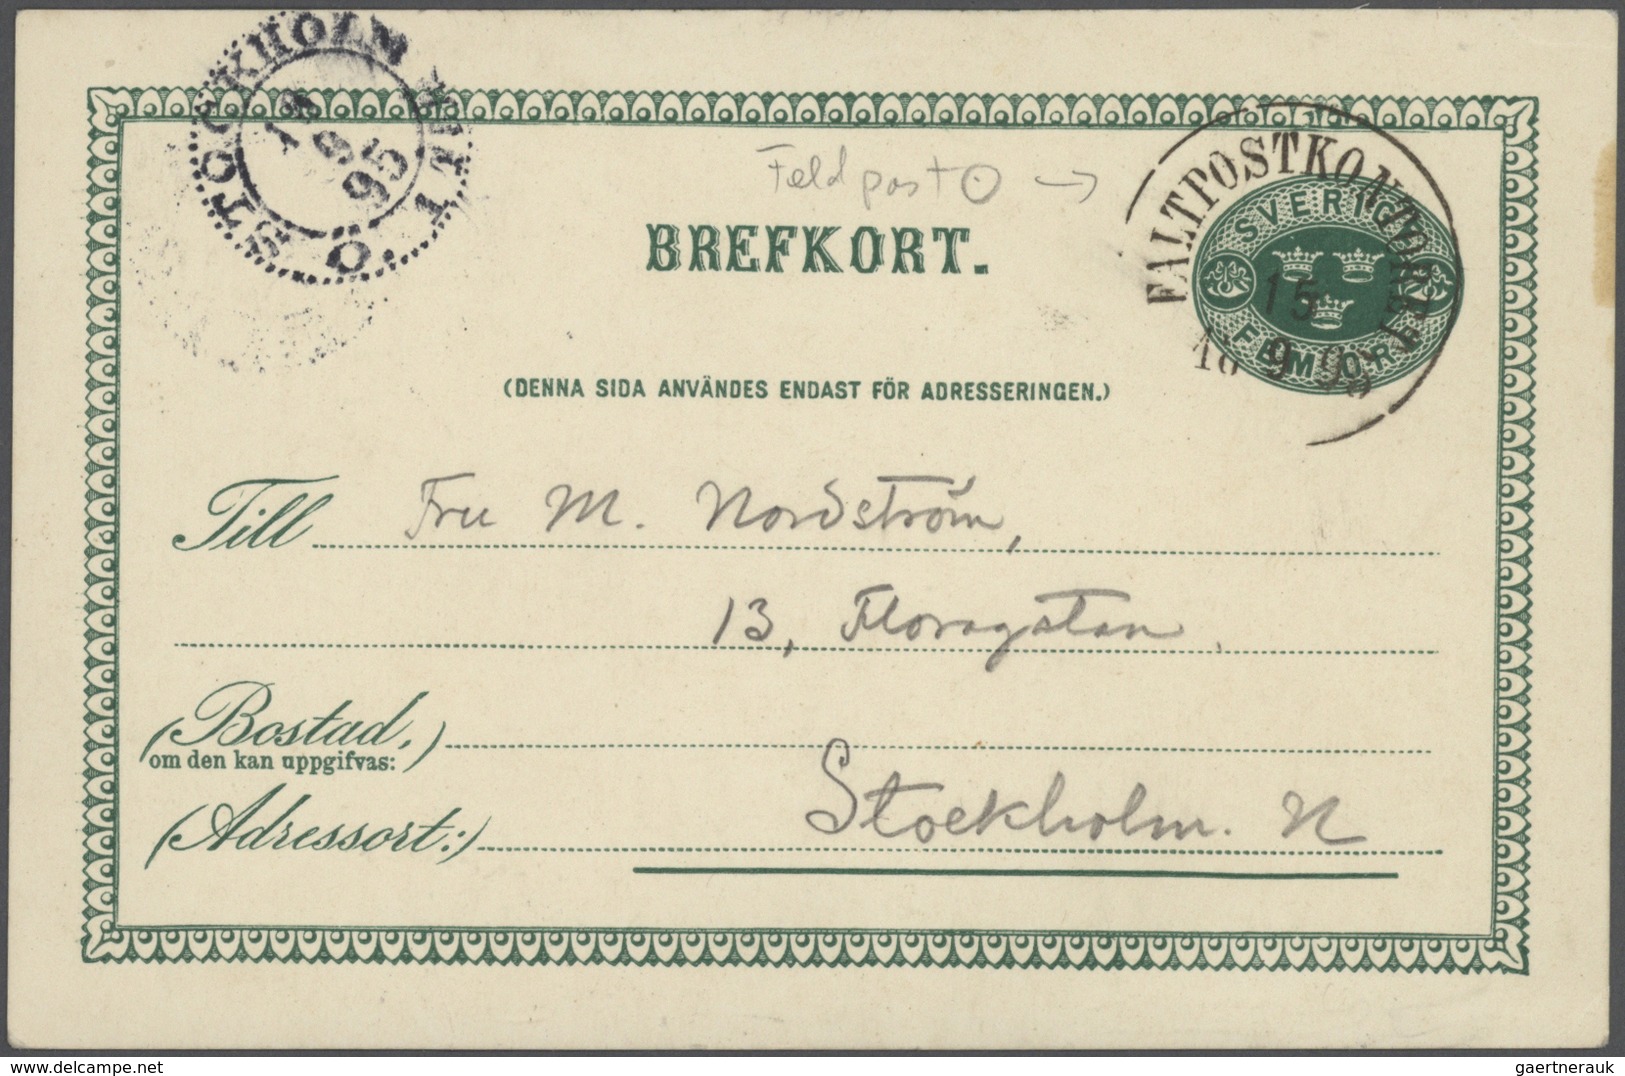 STOCKHOLM
9
95
Feldpost
FÄLTPOSTKONDUKTÖR
15
9
SVERIGE
FEM ÖRE
BREFKORT.
(DENNA SIDA ANVÄNDES ENDAST FÖR ADRESSERINGEN.)
Till Fru M. Nordström,
13, Floragatan
(Bostad,)
om den kan uppgifvas:
(Adressort:) Stockholm. N
gaertnerauk